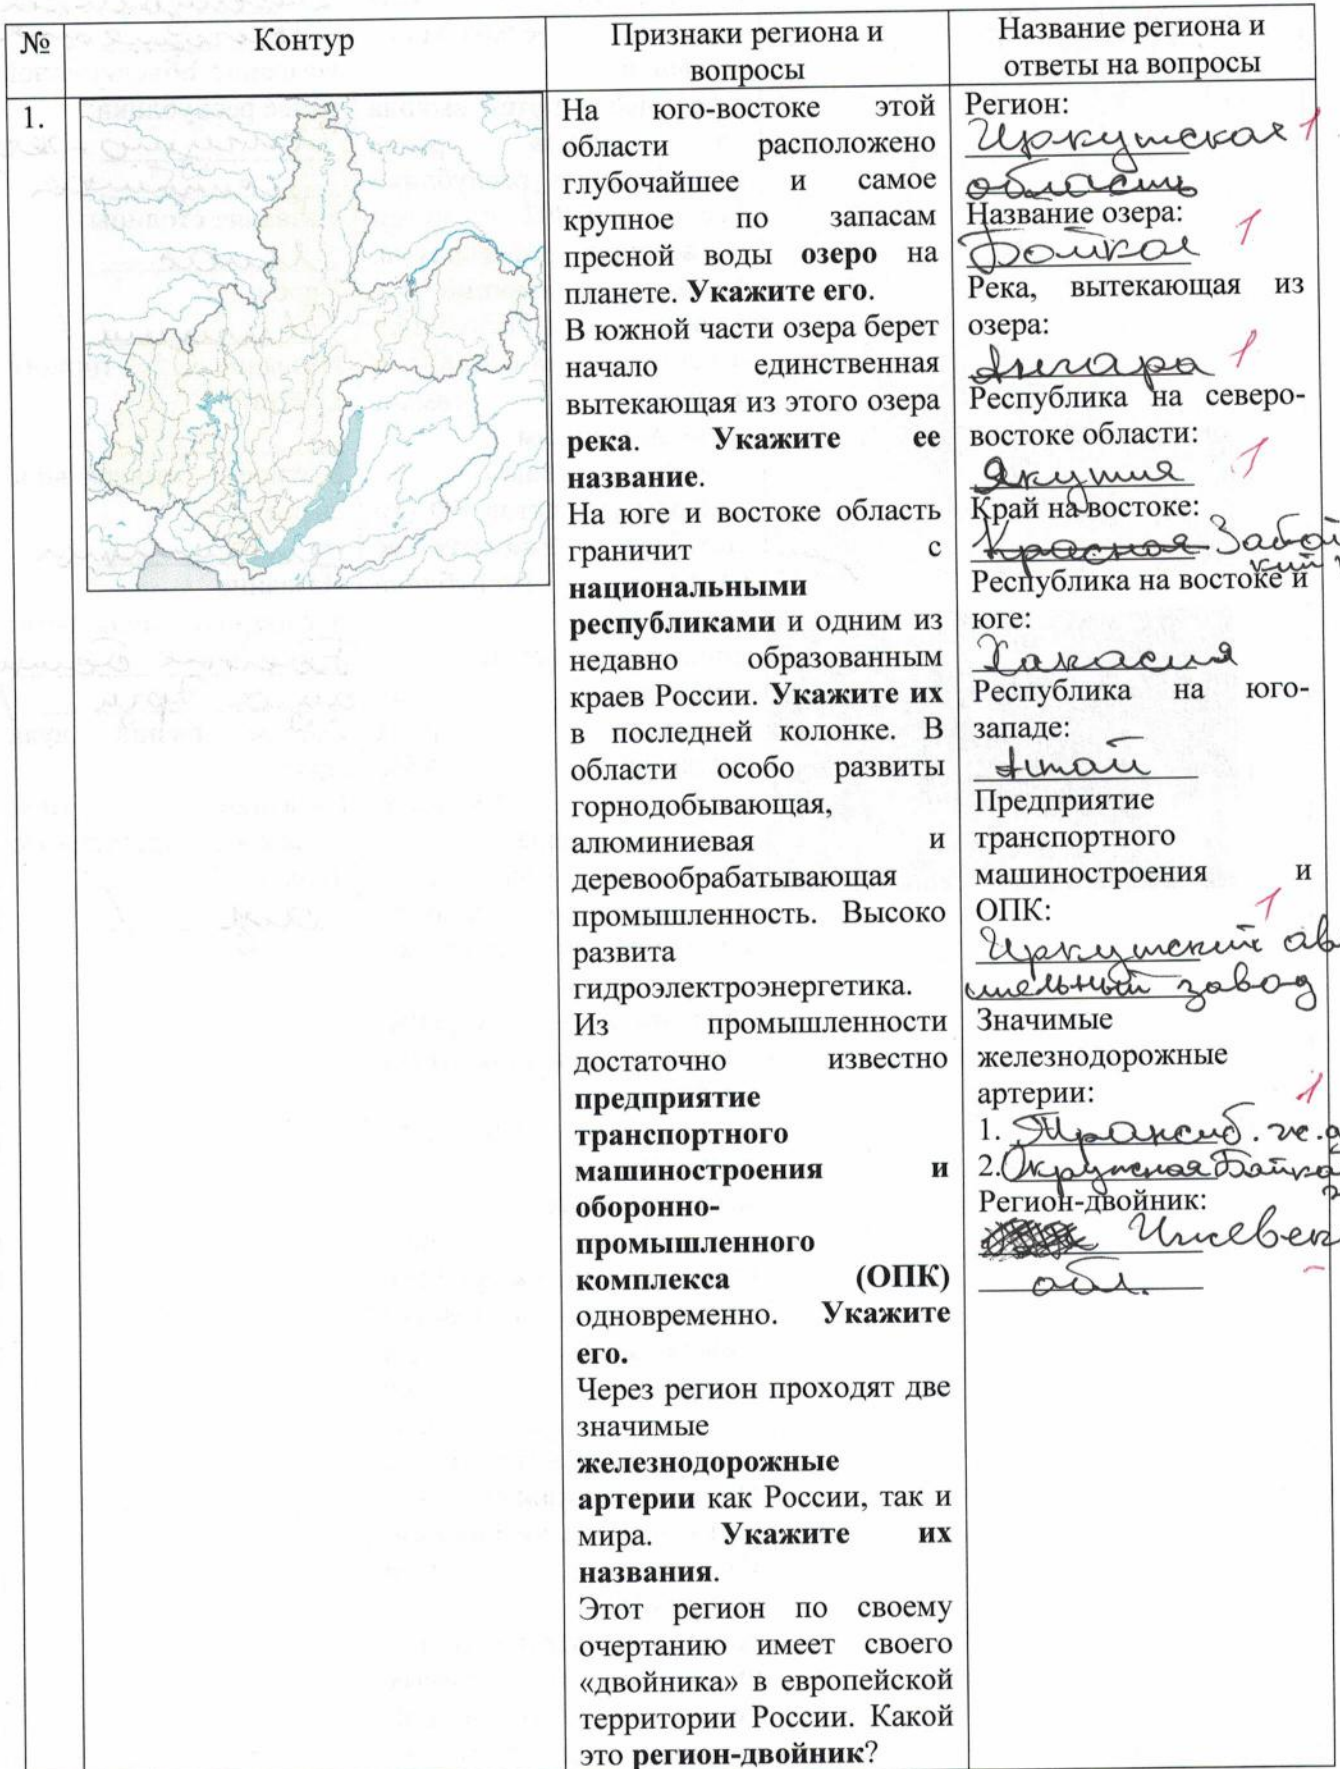 №
Контур
Признаки региона и
вопросы
Название региона и
ответы на вопросы
1.
На юго-востоке этой
области расположено
глубочайшее и самое
крупное по запасам
пресной воды озеро на
планете. Укажите его.
В южной части озера берет
начало единственная
вытекающая из этого озера
река. Укажите ее
название.
На юге и востоке область
граничит с
национальными
республиками и одним из
недавно образованным
краев России. Укажите их
в последней колонке. В
области особо развиты
горнодобывающая,
алюминиевая и
деревообрабатывающая
промышленность. Высоко
развита
гидроэлектроэнергетика.
Из промышленности
достаточно известно
предприятие
транспортного
машиностроения и
оборонно-
промышленного
комплекса (ОПК)
одновременно. Укажите
его.
Через регион проходят две
значимые
железнодорожные
артерии как России, так и
мира. Укажите их
названия.
Этот регион по своему
очертанию имеет своего
«двойника» в европейской
территории России. Какой
это регион-двойник?
Регион:
Иркутская 1
область
Название озера:
Байкал 1
Река, вытекающая из
озера:
Ангара 1
Республика на северо-
востоке области:
Якутия 1
Край на востоке:
Красноя Забай
кий
Республика на востоке и
юге:
Хакасия
Республика на юго-
западе:
Алтай
Предприятие
транспортного
машиностроения и
ОПК: 1
Иркутский ав
ительный завод
Значимые
железнодорожные
артерии: 1
1. Транссиб. ж.д
2. Окружная Байка
Регион-двойник:
Ижевск
обл. -